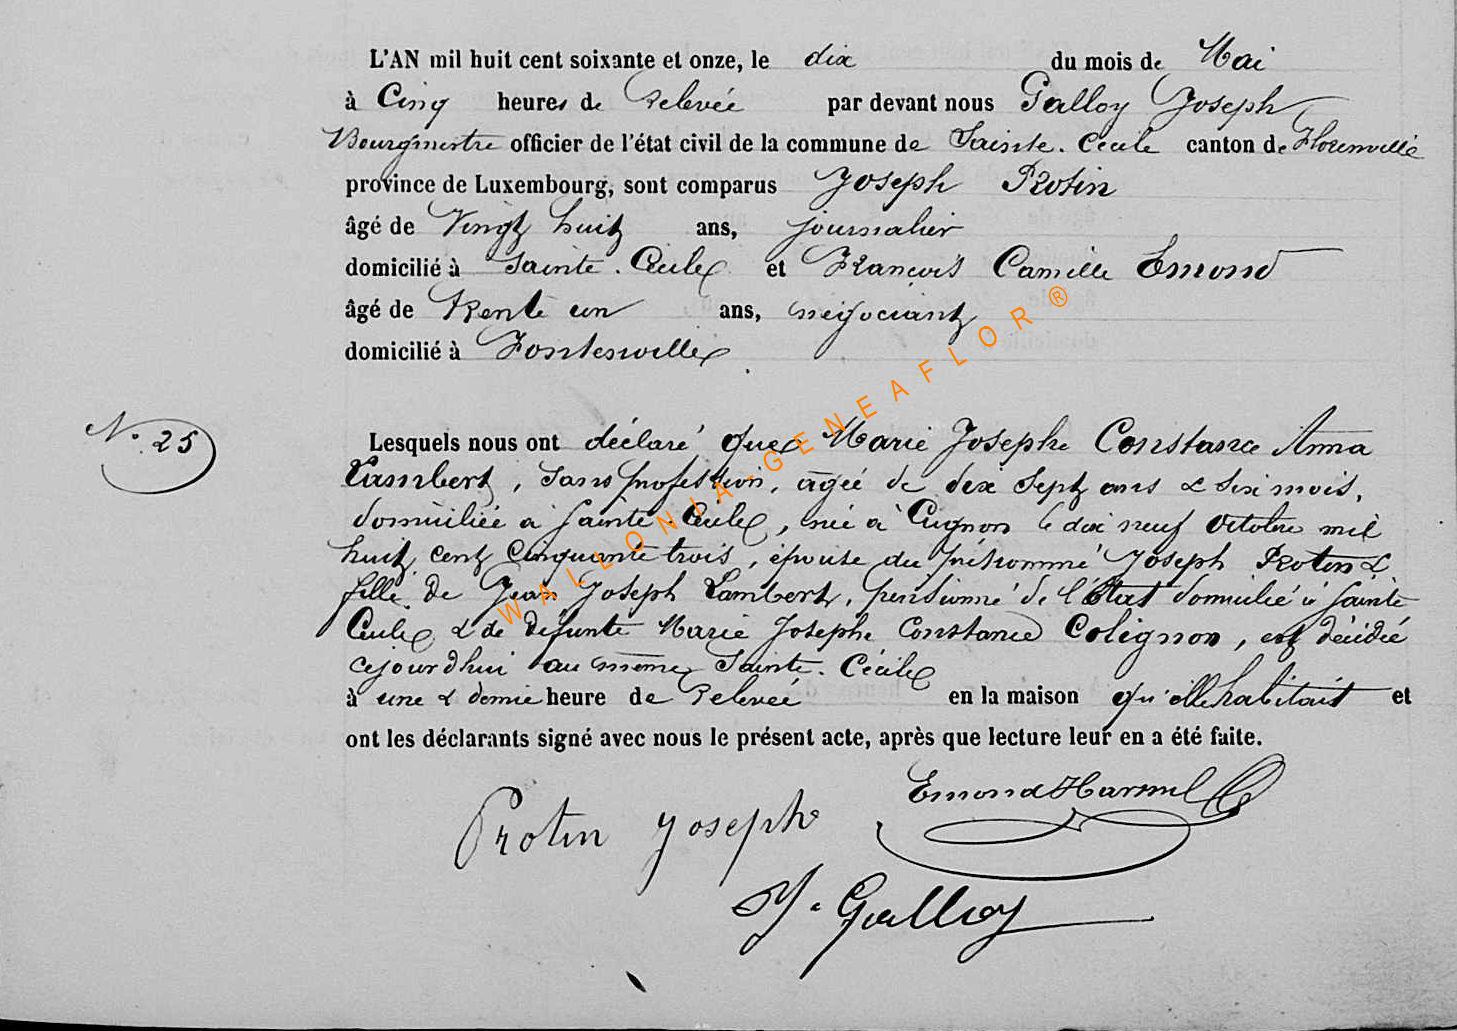 L'AN mil huit cent soixante et onze, le dix du mois de Mai
à Cinq heures de Relevée par devant nous Galloy Joseph
Bourgmestre officier de l'état civil de la commune de Sainte-Cécile canton de Florenville
province de Luxembourg, sont comparus Joseph Protin
âgé de Vingt huit ans, journalier
domicilié à Sainte-Cécile et François Camille Emond
âgé de Trente un ans, négociant
domicilié à Fontenoille
N° 25
Lesquels nous ont déclaré que Marie Josephe Constance Anna
Lambert, sans profession, âgée de dix sept ans & six mois,
domiciliée à Sainte-Cécile, née à Cugnon le dix neuf Octobre mil
huit cent cinquante trois, épouse du prénommé Joseph Protin &
fille de Jean Joseph Lambert, pensionné de l'État domicilié à Sainte
Cécile & de défunte Marie Josephe Constance Colignon, est décédée
cejourdhui au même Sainte-Cécile
à une & demie heure de Relevée en la maison qu'elle habitait et
ont les déclarants signé avec nous le présent acte, après que lecture leur en a été faite.
Emond Harmel
Protin Joseph
J. Galloy
WALLONIA-GENEAFLOR®